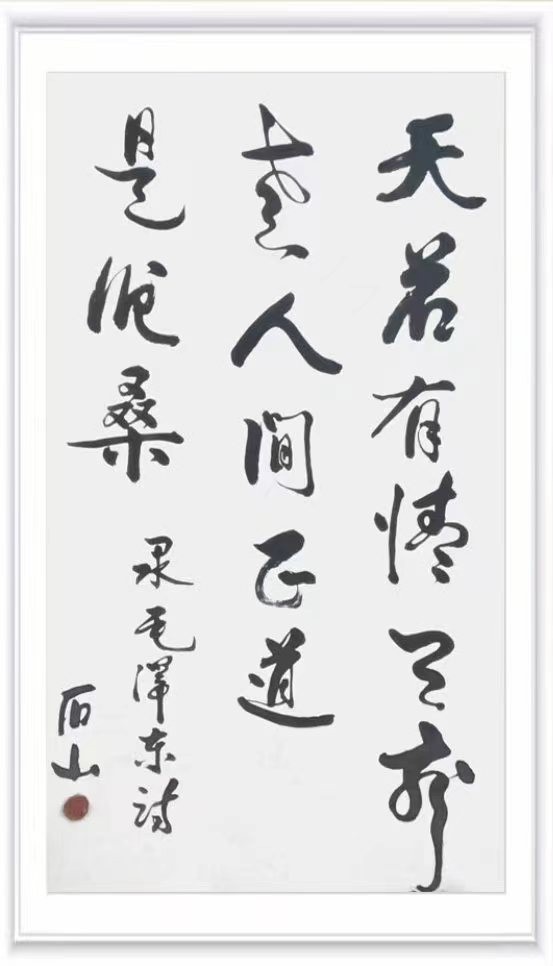 天若有情天亦
老人間正道
是滄桑
录毛澤东诗
石山